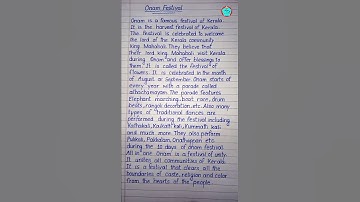 Onam Festival
Onam is a famous festival of Kerala.
It is the harvest festival of Kerala.
The festival is celebrated to welcome
the lord of the Kerala community
King Mahabali. They believe that
their lord king Mahabali visit Kerala
during Onam and offer blessings to
them. It is called the festival of
flowers. It is celebrated in the month
of August or September. Onam starts
every year with a parade called
athachamayam. The parade features
Elephant marching, boat, race, drum
beats, rangoli decoration, etc. Also many
types of traditional dances are
performed during the festival including
Kathakali, Kaikotti kali, Kummatti kali
and much more. They also perform
Pulikali, Pookalam, Onathappan etc
during the 10 days of onam festival.
All in one Onam is a festival of unity.
It unites all communities of Kerala.
It is a festival that clears all the
boundaries of caste, religion and color
from the hearts of the people.